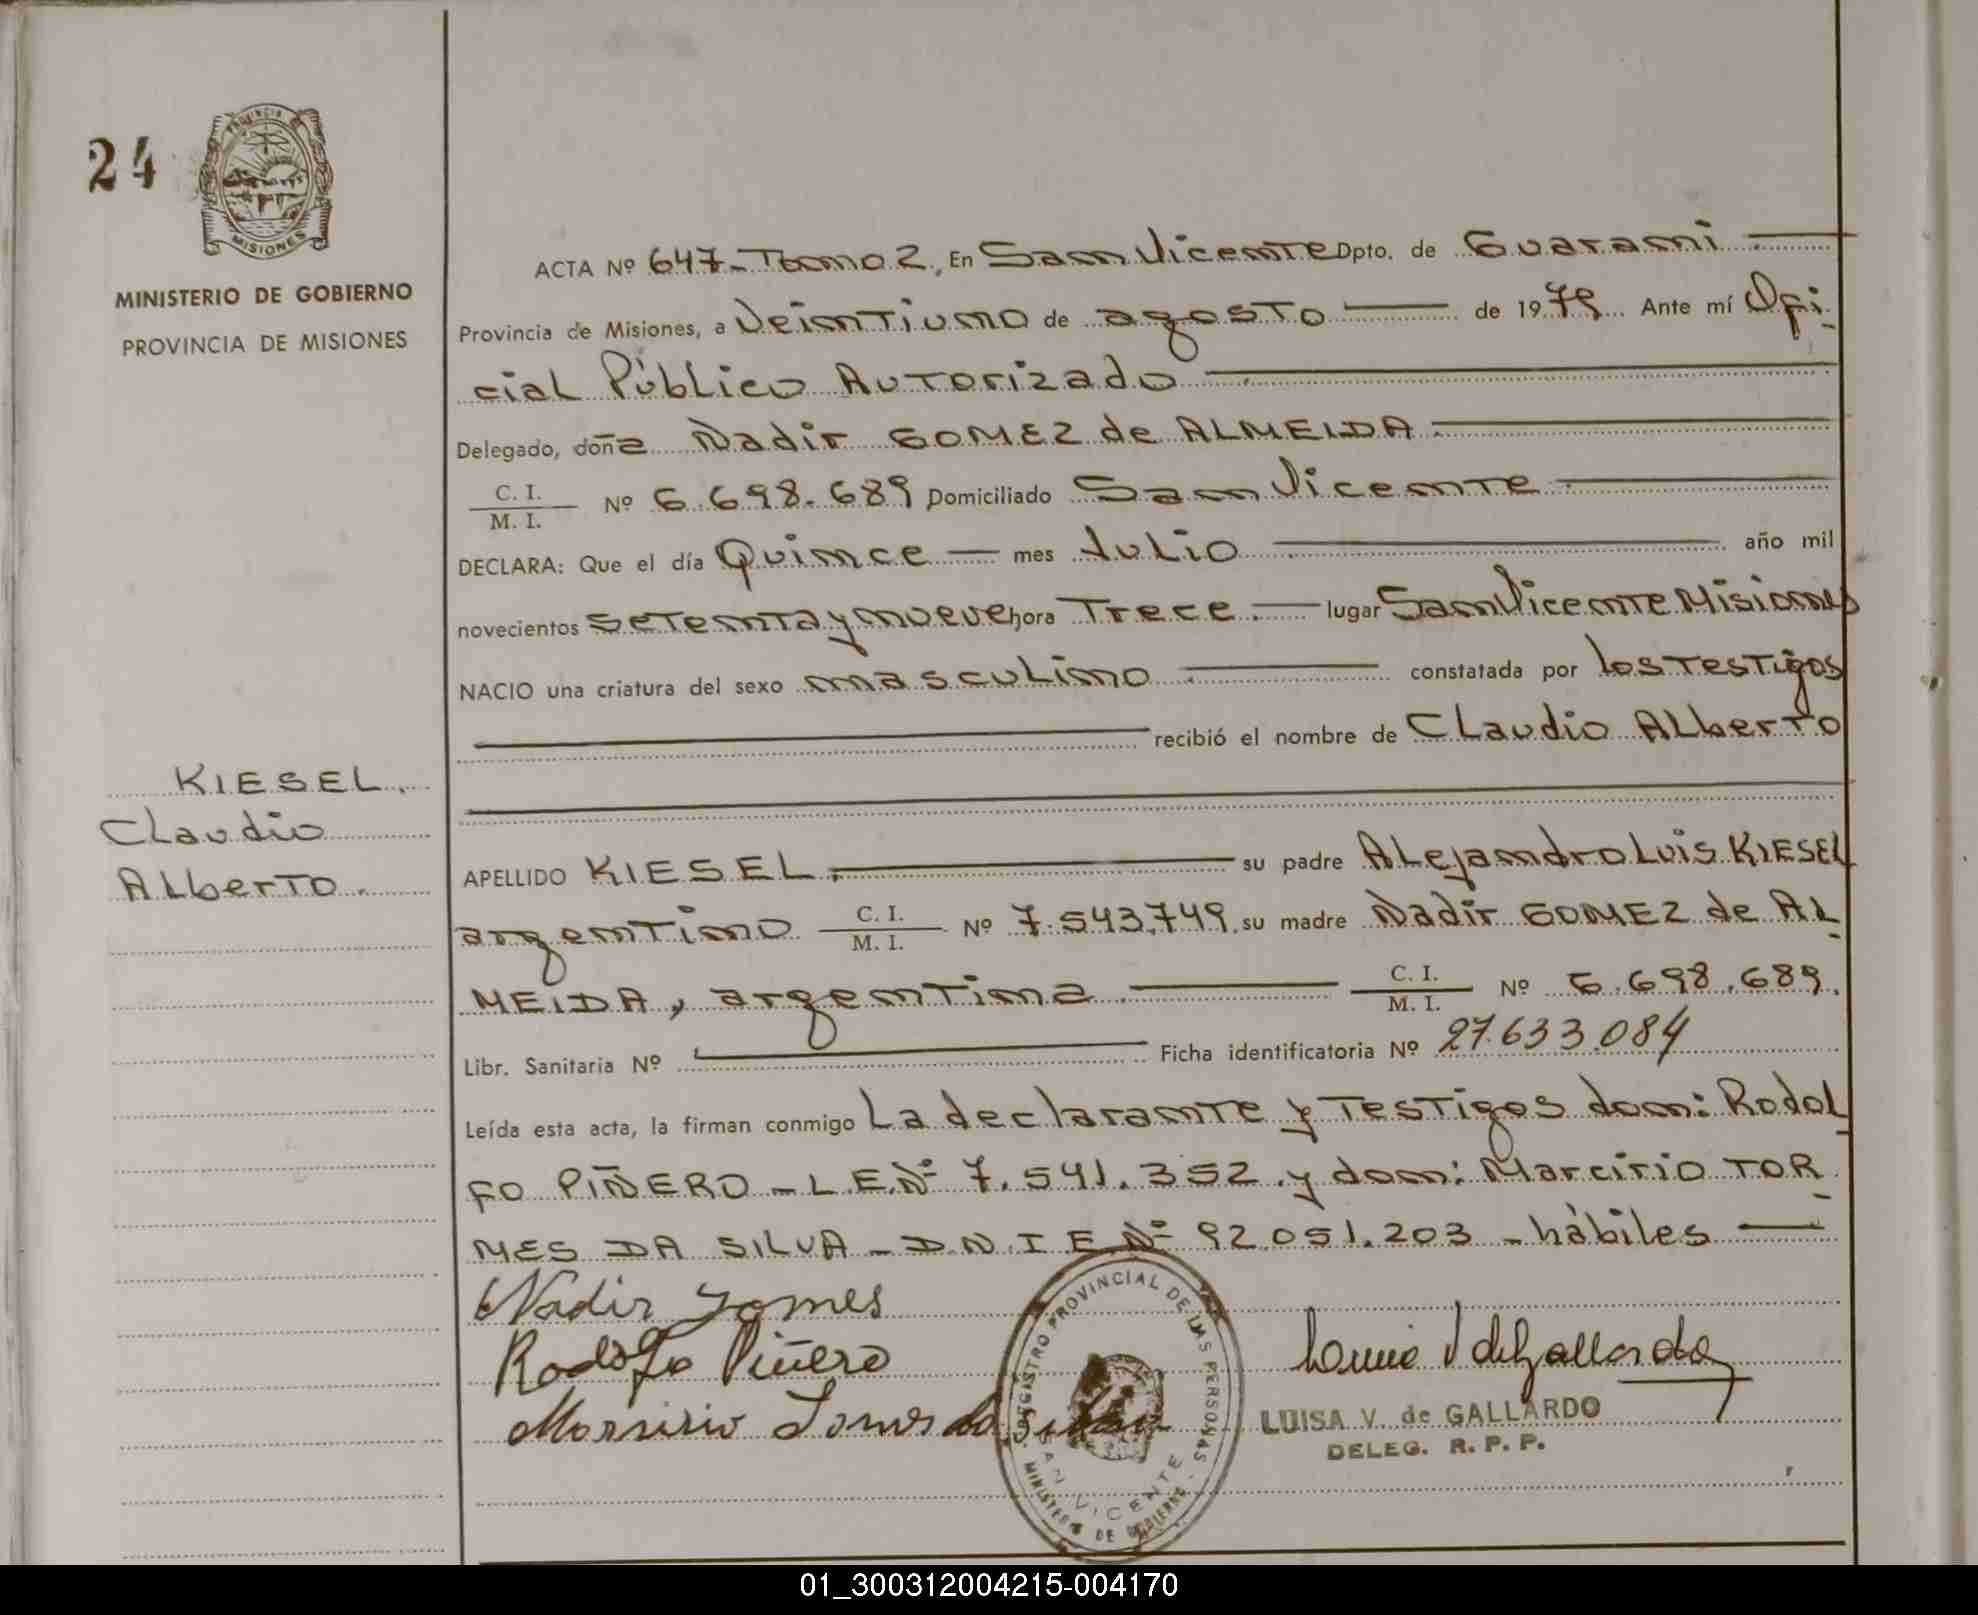 24
PROVINCIA DE
MISIONES
MINISTERIO DE GOBIERNO
PROVINCIA DE MISIONES
KIESEL,
Claudio
Alberto.
ACTA Nº 647-Tomo 2, En San Vicente Dpto. de Guarani
Provincia de Misiones, a Veintiuno de agosto de 1979 Ante mí Ofi-
cial Público Autorizado
Delegado, doña Nadir GOMEZ de ALMEIDA
C. I. / M. I. Nº 6.698.689 Domiciliado San Vicente
DECLARA: Que el día Quince mes Julio año mil
novecientos setenta y nueve hora Trece lugar San Vicente Misiones
NACIO una criatura del sexo masculino constatada por los testigos
recibió el nombre de Claudio Alberto
APELLIDO KIESEL, su padre Alejandro Luis KIESEL
argentino C. I. / M. I. Nº 7.543.749, su madre Nadir GOMEZ de AL-
MEIDA, argentina C. I. / M. I. Nº 6.698.689.
Libr. Sanitaria Nº Ficha identificatoria Nº 27.633.084
Leída esta acta, la firman conmigo La declarante y testigos don: Rodol-
fo PIÑERO - L.E.Nº 7.541.352 y don: Marcirio TOR-
MES DA SILVA - D.N.I.E.Nº 92.051.203 - hábiles
Nadir Gomes
Rodolfo Piñero
Marsirio Tormes da Silva
REGISTRO PROVINCIAL DE LAS PERSONAS
SAN VICENTE
MINISTERIO DE GOBIERNO
Luisa V de Gallardo
LUISA V. de GALLARDO
DELEG. R. P. P.
01_300312004215-004170